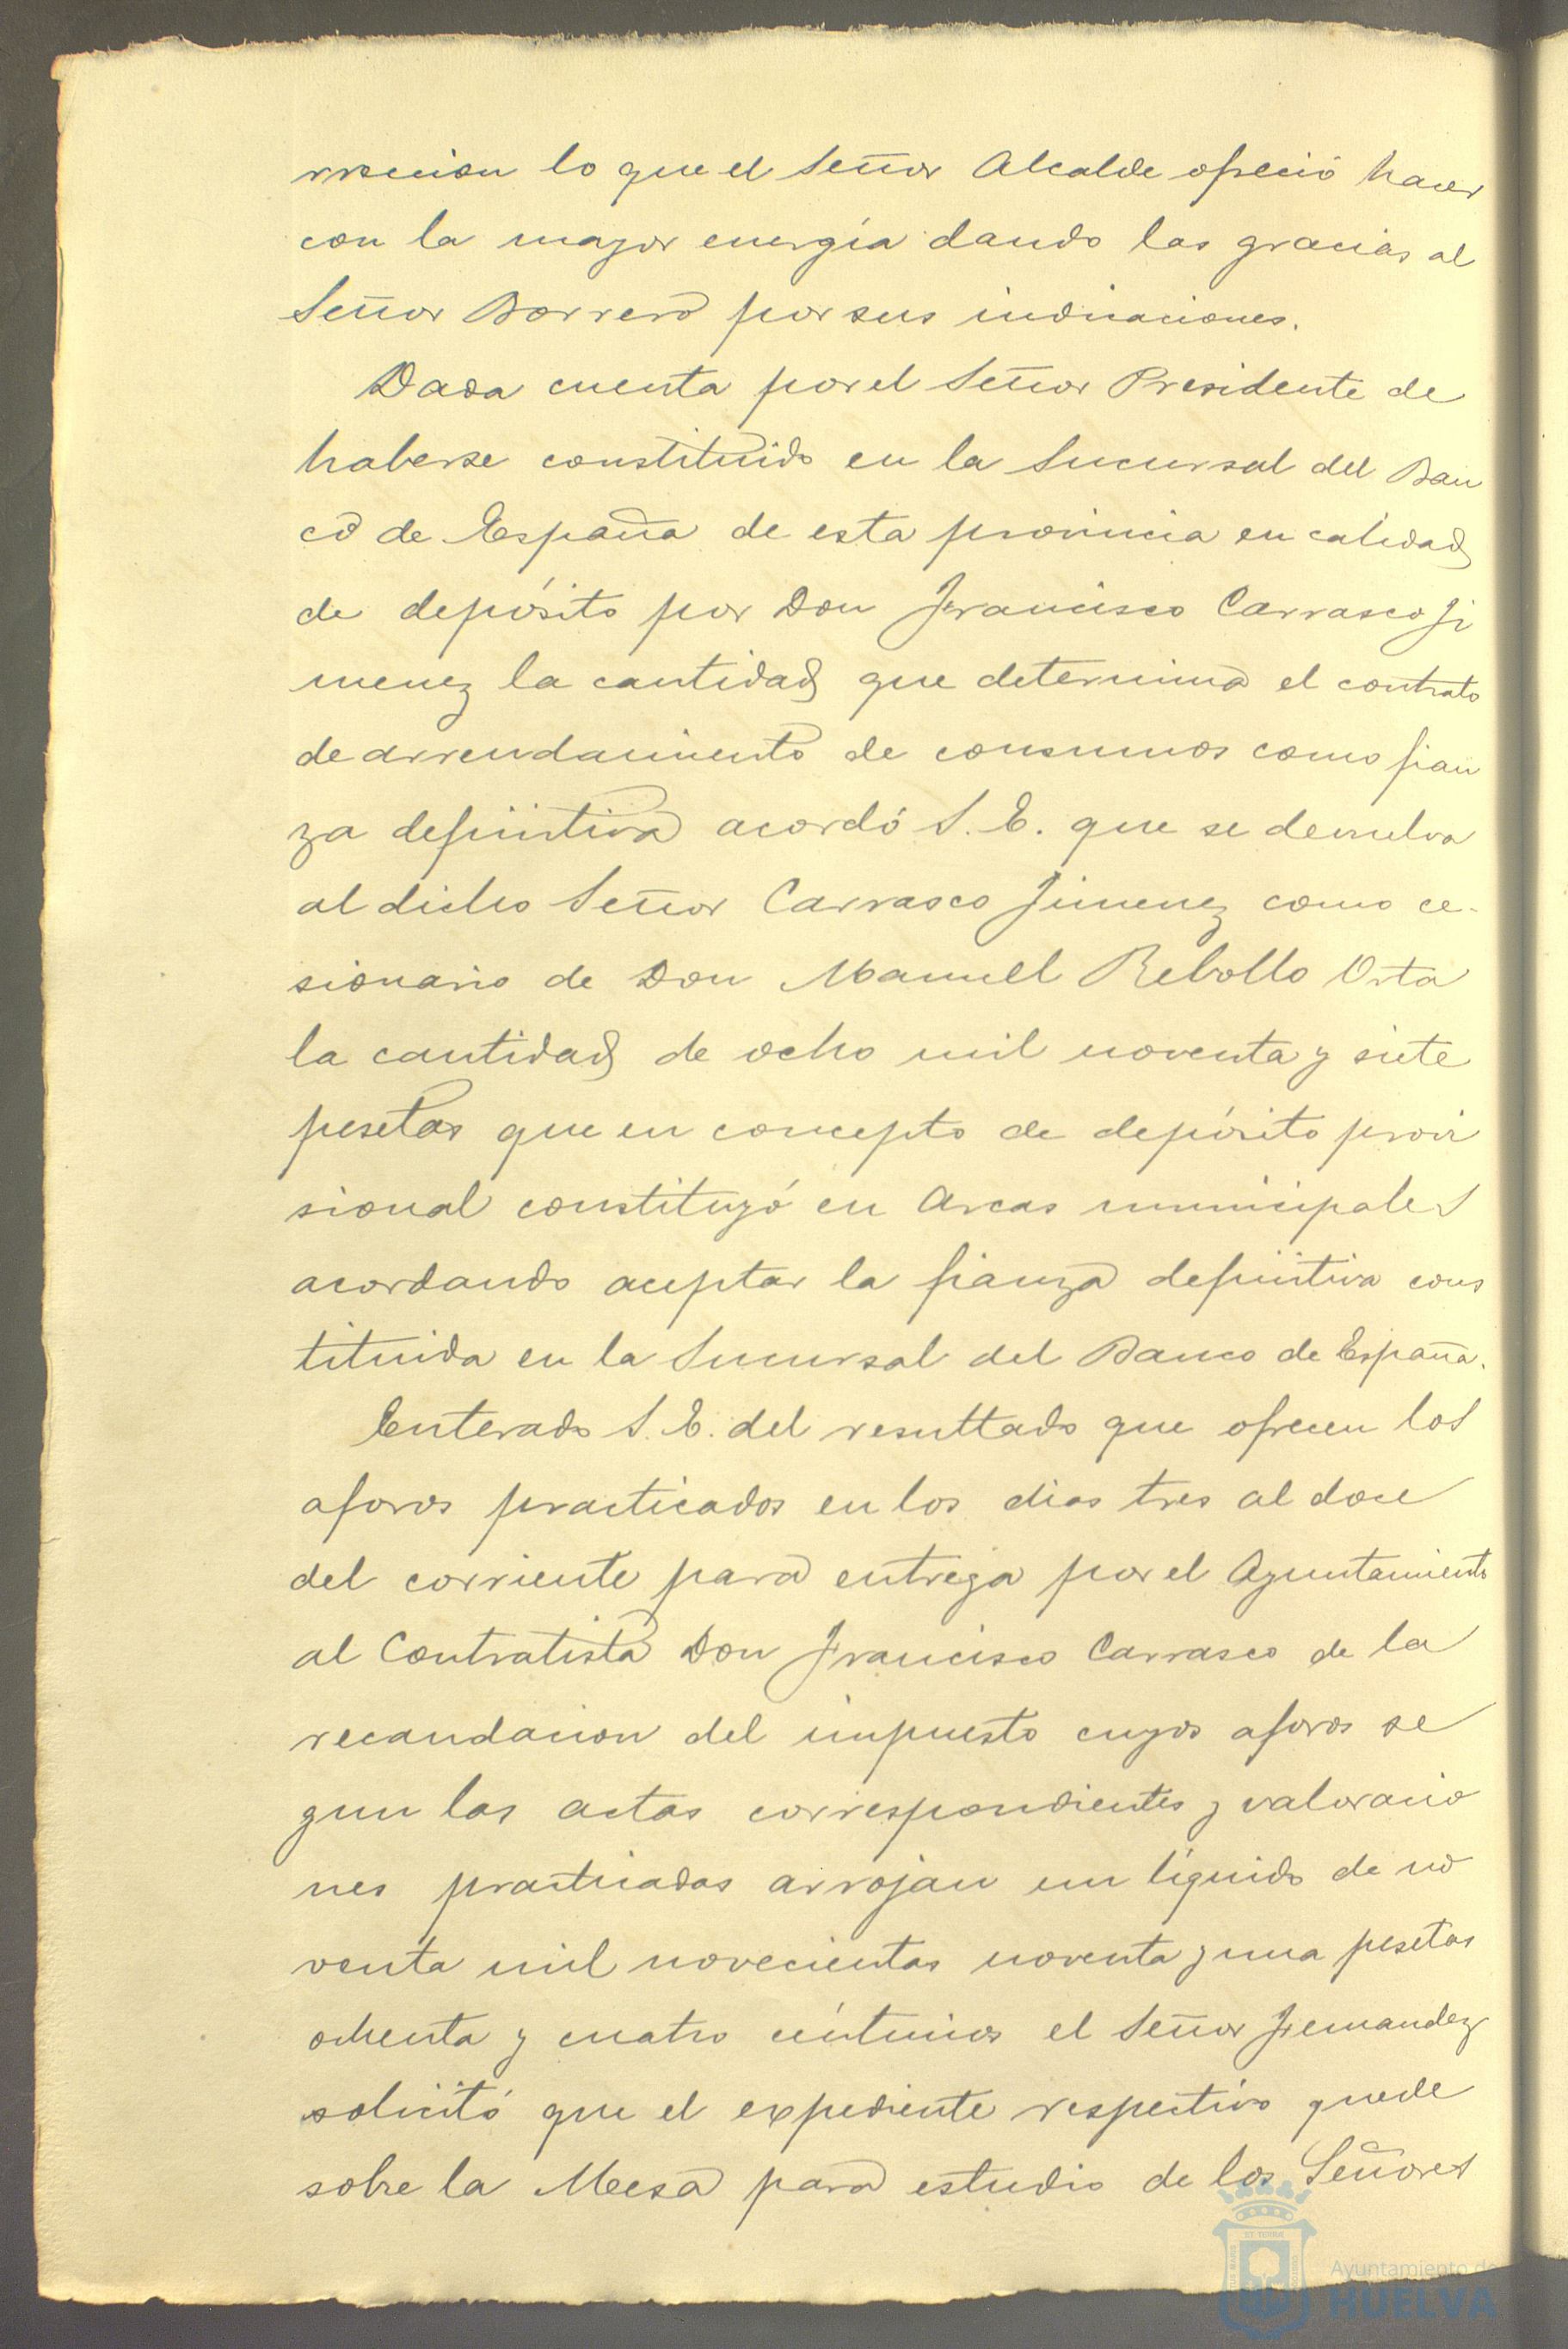 rreccion lo que el Señor Alcalde ofreció hacer
con la mayor energía dando las gracias al
Señor Borrero por sus indicaciones.
Dada cuenta por el Señor Presidente de
haberse constituido en la Sucursal del Ban
co de España de esta provincia en calidad
de depósito por Don Francisco Carrasco Ji
menez la cantidad que determina el contrato
de arrendamiento de consumos como fian
za definitiva acordó S. E. que se devuelva
al dicho Señor Carrasco Jimenez como ce-
sionario de Don Manuel Rebollo Orta
la cantidad de ocho mil noventa y siete
pesetas que en concepto de depósito provi
sional constituyó en Arcas municipales
acordando aceptar la fianza definitiva cons
tituida en la Sucursal del Banco de España.
Enterado S. E. del resultado que ofrecen los
aforos practicados en los dias tres al doce
del corriente para entrega por el Ayuntamiento
al Contratista Don Francisco Carrasco de la
recaudacion del impuesto cuyos aforos se
gun las actas correspondientes y valoracio
nes practicadas arrojan un líquido de no
venta mil novecientas noventa y una pesetas
ochenta y cuatro céntimos el Señor Fernandez
solicitó que el expediente respectivo quede
sobre la Mesa para estudio de los Señores
Ayuntamiento de
HUELVA